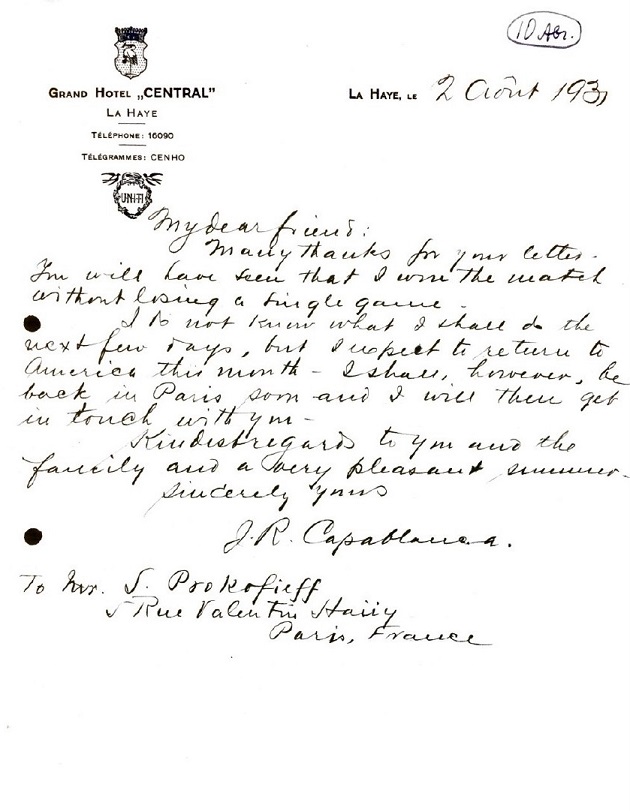 10 Abr.
GRAND HOTEL „CENTRAL”
LA HAYE
TÉLÉPHONE: 16090
TÉLÉGRAMMES: CENHO
UNITI
LA HAYE, LE 2 Août 1931
My dear friend:
Many thanks for your letter.
You will have seen that I won the match
without losing a single game.
I do not know what I shall do the
next few days, but I expect to return to
America this month – I shall, however, be
back in Paris soon and I will then get
in touch with you –
Kindest regards to you and the
family and a very pleasant summer.
Sincerely yours
J. R. Capablanca.
To Mr. S. Prokofieff
5 Rue Valentin Haüy
Paris, France